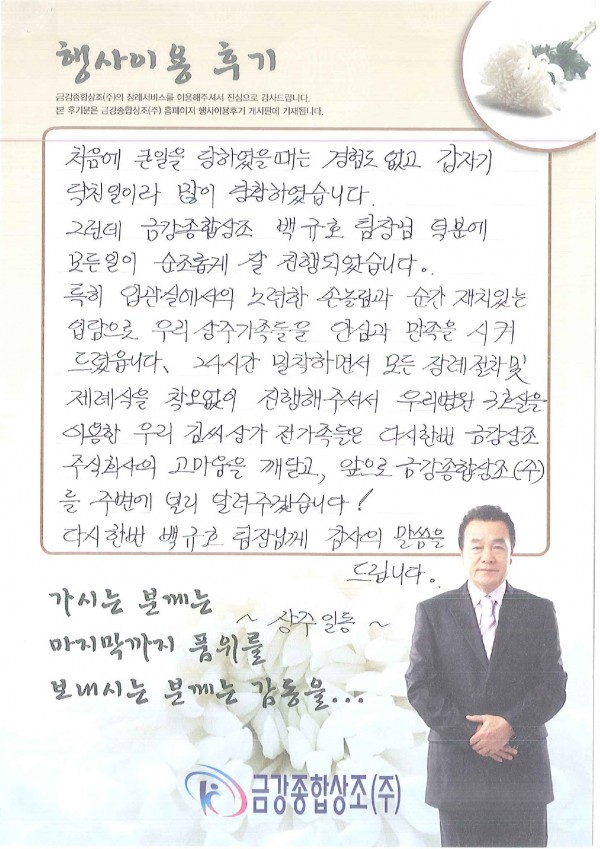 행사이용 후기
금강종합상조(주)의 장례서비스를 이용해주셔서 진심으로 감사드립니다.
본 후기문은 금강종합상조(주) 홈페이지 행사이용후기 게시판에 기재됩니다.
처음에 큰일을 당하였을때는 경험도 없고 갑자기
닥친일이라 많이 당황하였습니다.
그런데 금강종합상조 백규호 팀장님 덕분에
모든일이 순조롭게 잘 진행되었습니다.
특히 입관실에서의 노련한 손놀림과 순간 재치있는
입담으로 우리 상주가족들을 안심과 만족을 시켜
드렸습니다. 24시간 밀착하면서 모든 장례절차및
제례식을 착오없이 진행해주셔서 우리병원 3호실을
이용한 우리 김씨상가 전가족들은 다시한번 금강상조
주식회사의 고마움을 깨닫고, 앞으로 금강종합상조(주)
를 주변에 널리 알려주겠습니다!
다시한번 백규호 팀장님께 감사의 말씀을
드립니다.
~ 상주 일동 ~
가시는 분께는
마지막까지 품위를
보내시는 분께는 감동을...
금강종합상조(주)